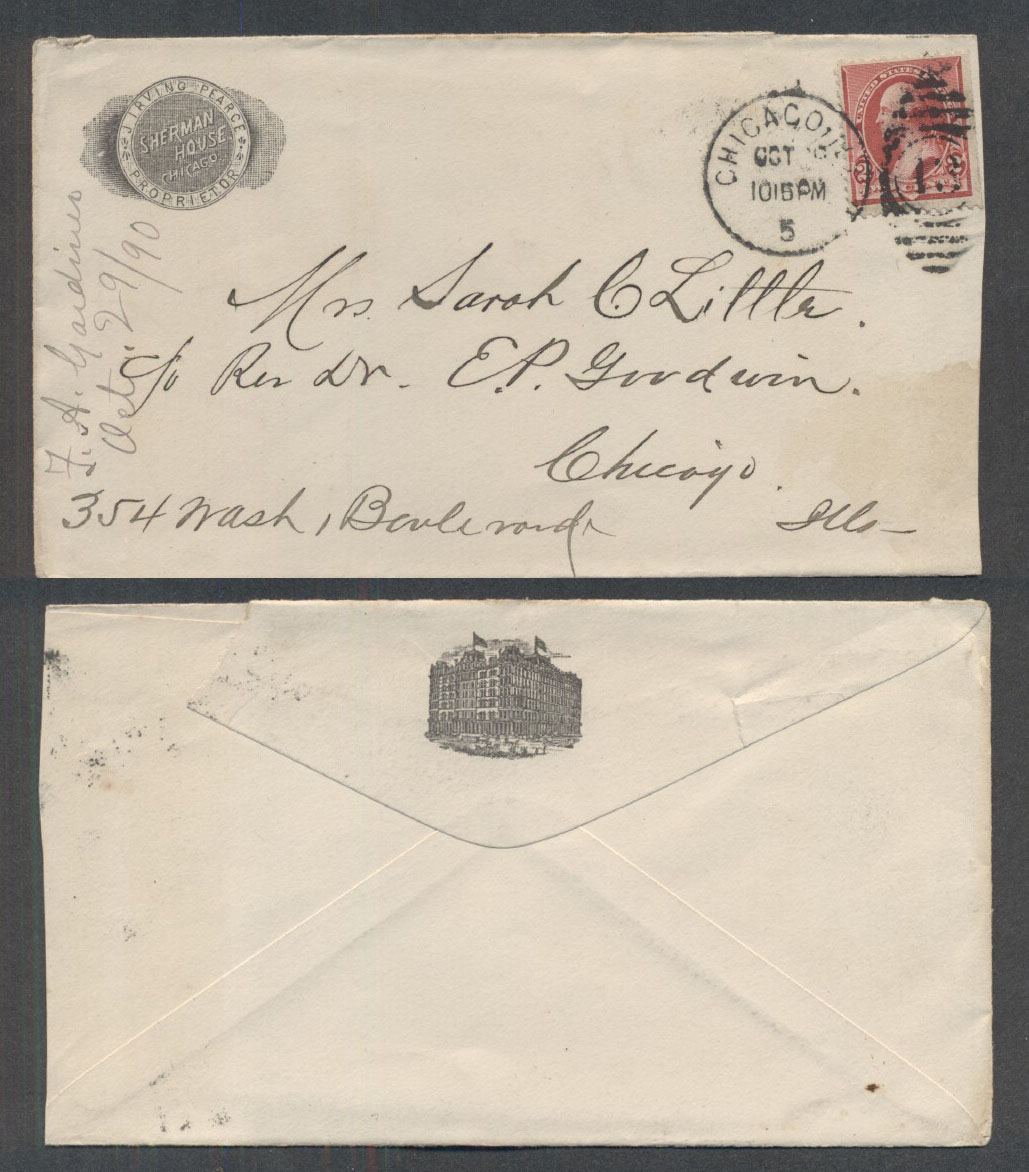 J. IRVING PEARCE
SHERMAN
HOUSE
CHICAGO
PROPRIETOR
CHICAGO, ILL.
OCT
10 15 PM
5
UNITED STATES
2 2
Mrs. Sarah C. Little.
c/o Rev Dr. E.P. Goodwin.
Chicago.
354 Wash, Boulevard Ills-
F. A. Gardiner
Oct. 29/90